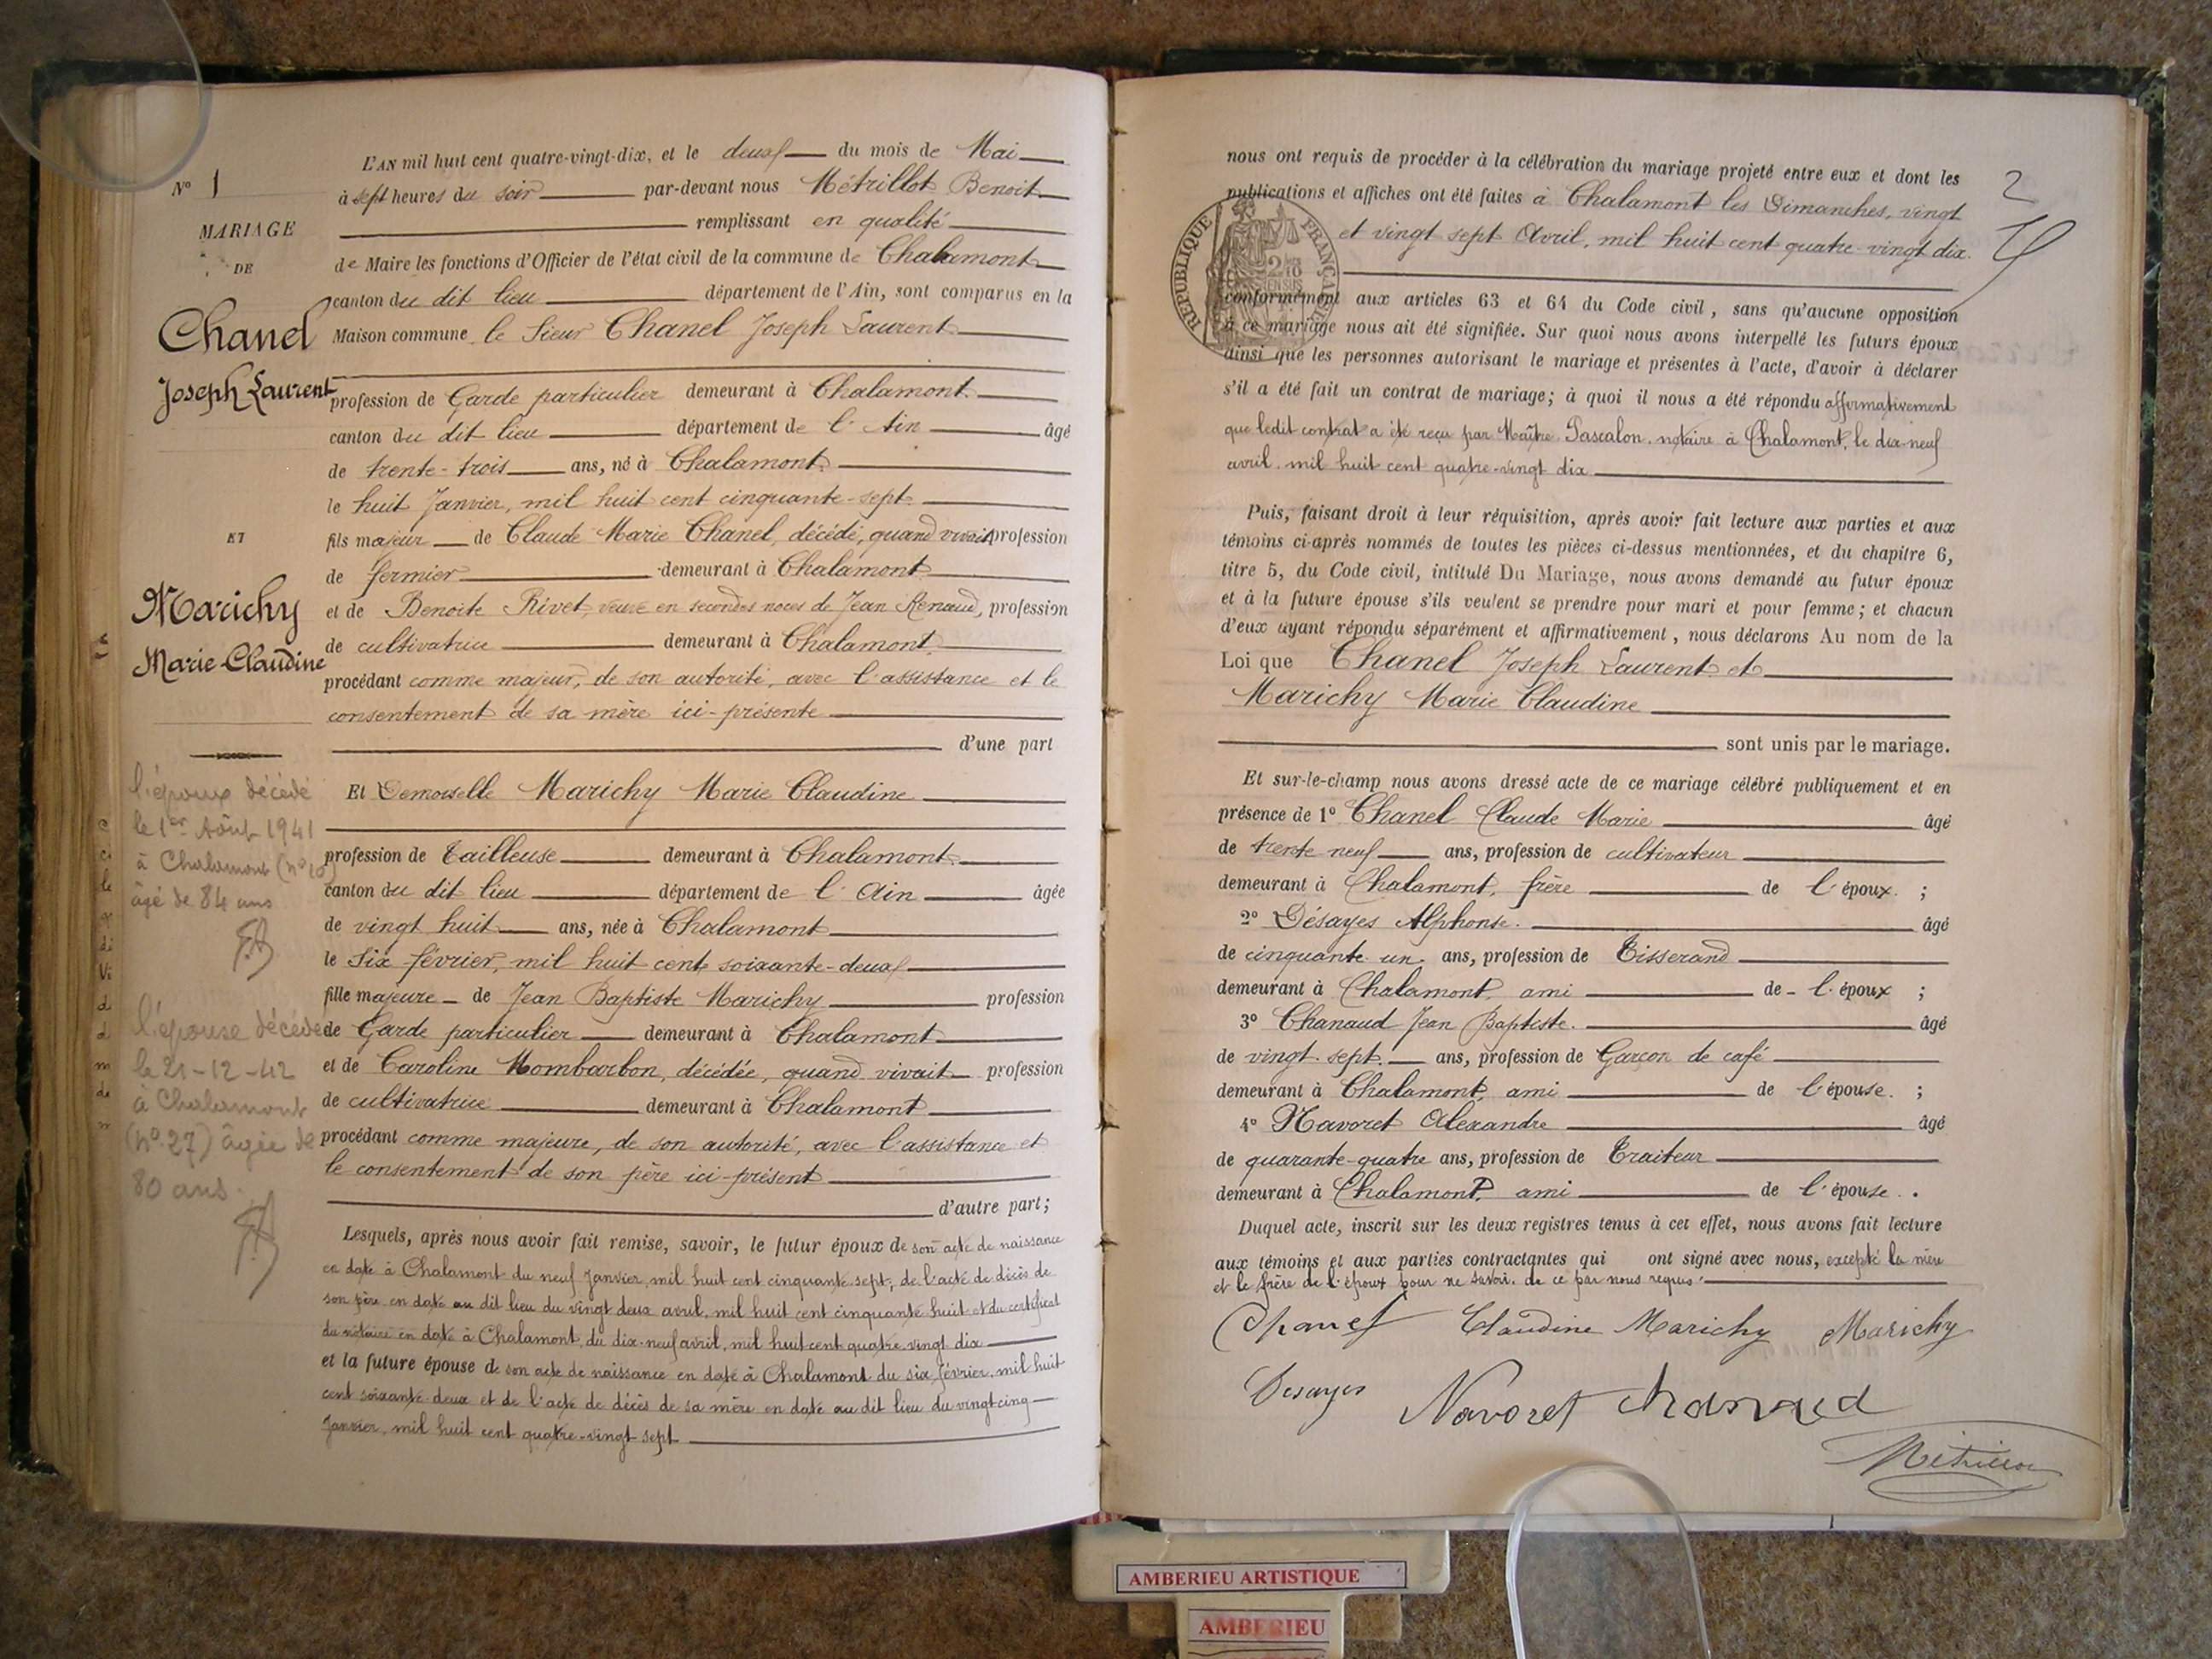 N° 1
MARIAGE
DE
Chanel
Joseph Laurent
ET
Marichy
Marie-Claudine
l'époux décédé
le 1er Août 1941
à Chalamont (n° 10)
âgé de 84 ans
l'épouse décédée
le 21-12-42
à Chalamont
(n° 27) âgée de
80 ans.
L'AN mil huit cent quatre-vingt-dix, et le deux du mois de Mai
à sept heures du soir par-devant nous Métrillot Benoit
remplissant en qualité
de Maire les fonctions d'Officier de l'état civil de la commune de Chalamont
canton du dit lieu département de l'Ain, sont comparus en la
Maison commune le Sieur Chanel Joseph Laurent
profession de Garde particulier demeurant à Chalamont.
canton du dit lieu département de l'Ain âgé
de trente-trois ans, né à Chalamont.
le huit Janvier, mil huit cent cinquante-sept
fils majeur de Claude Marie Chanel, décédé, quand vivait profession
de fermier demeurant à Chalamont
et de Benoite Rivet, veuve en secondes noces de Jean Renaud, profession
de cultivatrice demeurant à Chalamont
procédant comme majeur, de son autorité, avec l'assistance et le
consentement de sa mère ici-présente
d'une part
Et Demoiselle Marichy Marie Claudine
profession de Tailleuse demeurant à Chalamont.
canton du dit lieu département de l'Ain âgée
de vingt huit ans, née à Chalamont
le Six février, mil huit cent soixante-deux
fille majeure de Jean Baptiste Marichy profession
de Garde particulier demeurant à Chalamont
et de Caroline Mombarbon, décédée, quand vivait profession
de cultivatrice demeurant à Chalamont
procédant comme majeure, de son autorité, avec l'assistance et
le consentement de son père ici-présent
d'autre part;
Lesquels, après nous avoir fait remise, savoir, le futur époux de son acte de naissance
en date à Chalamont du neuf Janvier, mil huit cent cinquante sept, de l'acte de décès de
son père en date au dit lieu du vingt deux avril, mil huit cent cinquante huit et du certificat
du notaire en date à Chalamont du dix-neuf avril, mil huit cent quatre-vingt dix
et la future épouse de son acte de naissance en date à Chalamont du six février, mil huit
cent soixante-deux et de l'acte de décès de sa mère en date au dit lieu du vingt-cinq
Janvier, mil huit cent quatre-vingt sept
2
nous ont requis de procéder à la célébration du mariage projeté entre eux et dont les
publications et affiches ont été faites à Chalamont les Dimanches, vingt
et vingt sept Avril, mil huit cent quatre-vingt dix.
RÉPUBLIQUE FRANÇAISE
conformément aux articles 63 et 64 du Code civil, sans qu'aucune opposition
à ce mariage nous ait été signifiée. Sur quoi nous avons interpellé les futurs époux
ainsi que les personnes autorisant le mariage et présentes à l'acte, d'avoir à déclarer
s'il a été fait un contrat de mariage; à quoi il nous a été répondu affirmativement
que ledit contrat a été reçu par Maître Pascalon, notaire à Chalamont, le dix-neuf
avril, mil huit cent quatre-vingt dix
Puis, faisant droit à leur réquisition, après avoir fait lecture aux parties et aux
témoins ci-après nommés de toutes les pièces ci-dessus mentionnées, et du chapitre 6,
titre 5, du Code civil, intitulé Du Mariage, nous avons demandé au futur époux
et à la future épouse s'ils veulent se prendre pour mari et pour femme; et chacun
d'eux ayant répondu séparément et affirmativement, nous déclarons Au nom de la
Loi que Chanel Joseph Laurent et
Marichy Marie Claudine
sont unis par le mariage.
Et sur-le-champ nous avons dressé acte de ce mariage célébré publiquement et en
présence de 1° Chanel Claude Marie âgé
de trente neuf ans, profession de cultivateur
demeurant à Chalamont, frère de l'époux ;
2° Désayes Alphonse. âgé
de cinquante un ans, profession de Tisserand
demeurant à Chalamont, ami de l'époux ;
3° Chanaud Jean Baptiste. âgé
de vingt-sept. ans, profession de Garçon de café
demeurant à Chalamont, ami de l'épouse. ;
4° Navoret Alexandre âgé
de quarante-quatre ans, profession de Traiteur
demeurant à Chalamont, ami de l'épouse.
Duquel acte, inscrit sur les deux registres tenus à cet effet, nous avons fait lecture
aux témoins et aux parties contractantes qui ont signé avec nous, excepté la mère
et le frère de l'époux pour ne savoir, de ce par nous requis.
Chanel Claudine Marichy Marichy
Desayes Navoret Chanaud
Métrillot
AMBERIEU ARTISTIQUE
AMBERIEU